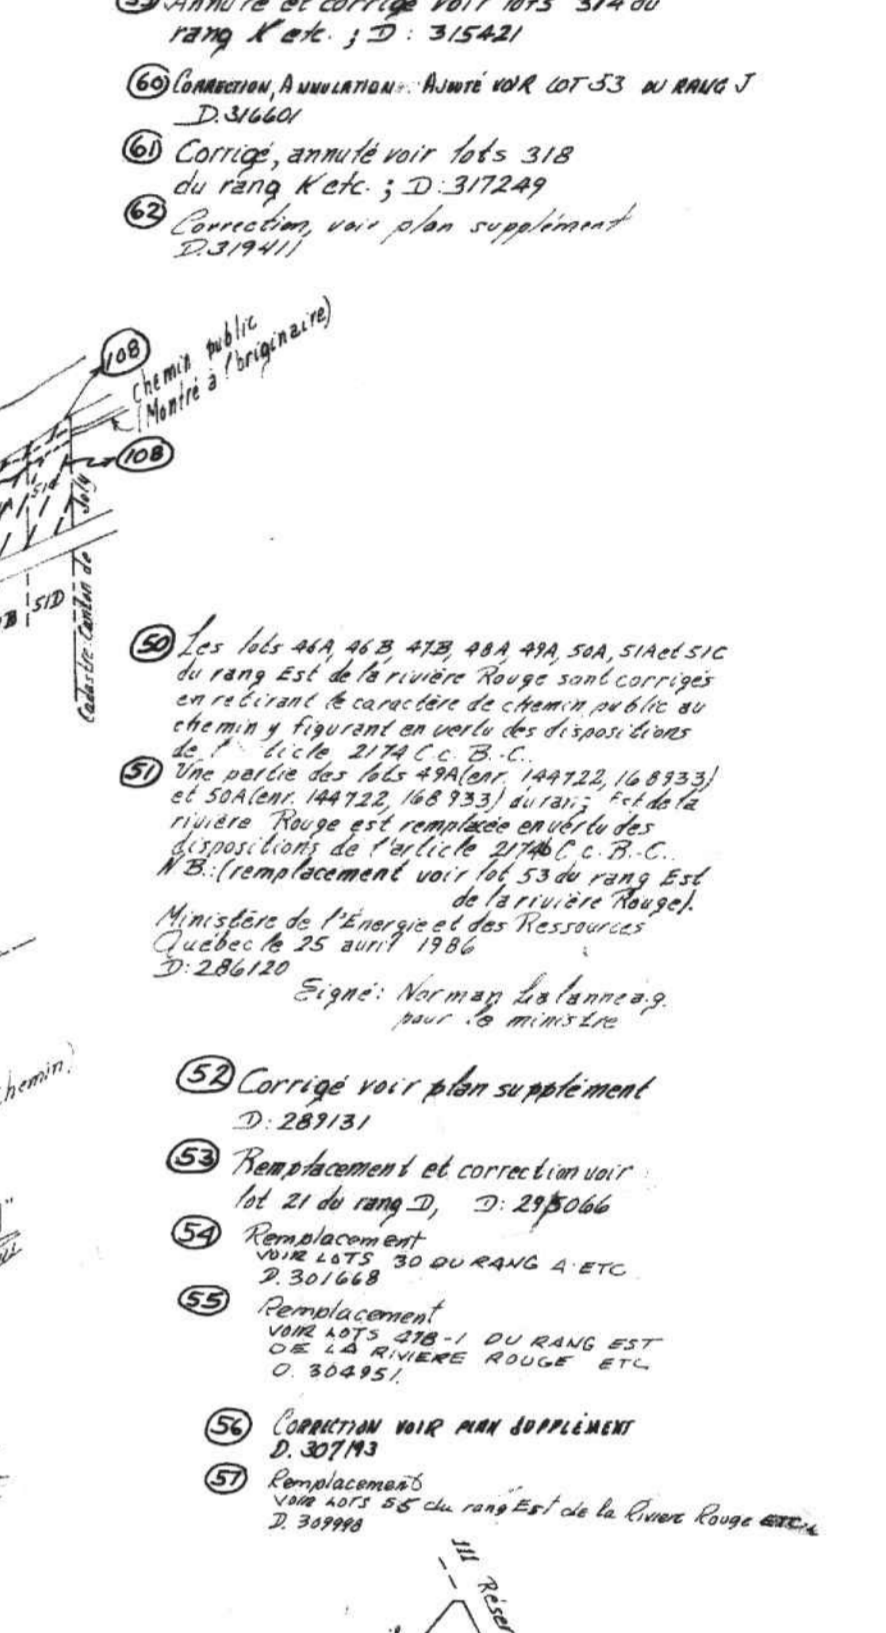 59 Annulé et corrigé voir lots 314 du
rang K etc. ; D : 315421
60 CORRECTION, ANNULATION. AJOUTÉ VOIR LOT 53 DU RANG J
D.316601
61 Corrigé, annulé voir lots 318
du rang K etc. ; D : 317249
62 Correction, voir plan supplément
D.319411
108
chemin public
(Montré à l'originaire)
108
51d
Cadastre: Canton de Joly
B 51D
50 Les lots 46A, 46B, 47B, 48A, 49A, 50A, 51A et 51C
du rang Est de la rivière Rouge sont corrigés
en retirant le caractère de chemin public au
chemin y figurant en vertu des dispositions
de l' ticle 2174 C.c. B.-C..
51 Une partie des lots 49A (enr. 144722, 168933)
et 50A (enr. 144722, 168933) du rang Est de la
rivière Rouge est remplacée en vertu des
dispositions de l'article 2174b C.c. B.-C..
N B.: (remplacement voir lot 53 du rang Est
de la rivière Rouge).
Ministère de l'Énergie et des Ressources
Québec le 25 avril 1986
D: 286120
Signé: Norman Lalanne a.g.
pour le ministre
hemin)
52 Corrigé voir plan supplément
D: 289131
53 Remplacement et correction voir
lot 21 du rang D, D: 295066
54 Remplacement
VOIR LOTS 30 DU RANG A ETC
D. 301668
55 Remplacement
VOIR LOTS 47B-1 DU RANG EST
DE LA RIVIERE ROUGE ETC
D. 304951.
56 CORRECTION VOIR PLAN SUPPLÉMENT
D. 307193
57 Remplacement
VOIR LOTS 55 du rang Est de la Riviere Rouge ETC.
D. 309998
III Réser